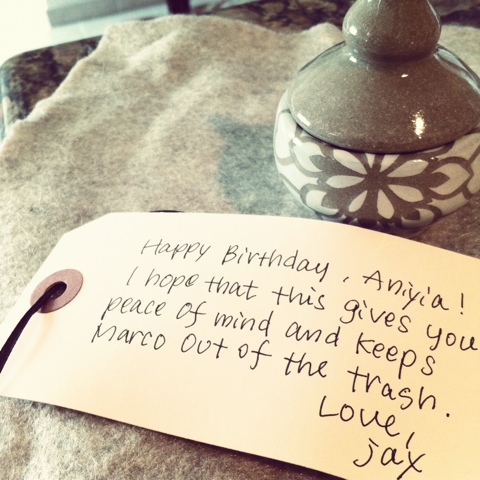 Happy Birthday, Aniyia!
I hope that this gives you
peace of mind and keeps
Marco out of the trash.
Love,
Jax